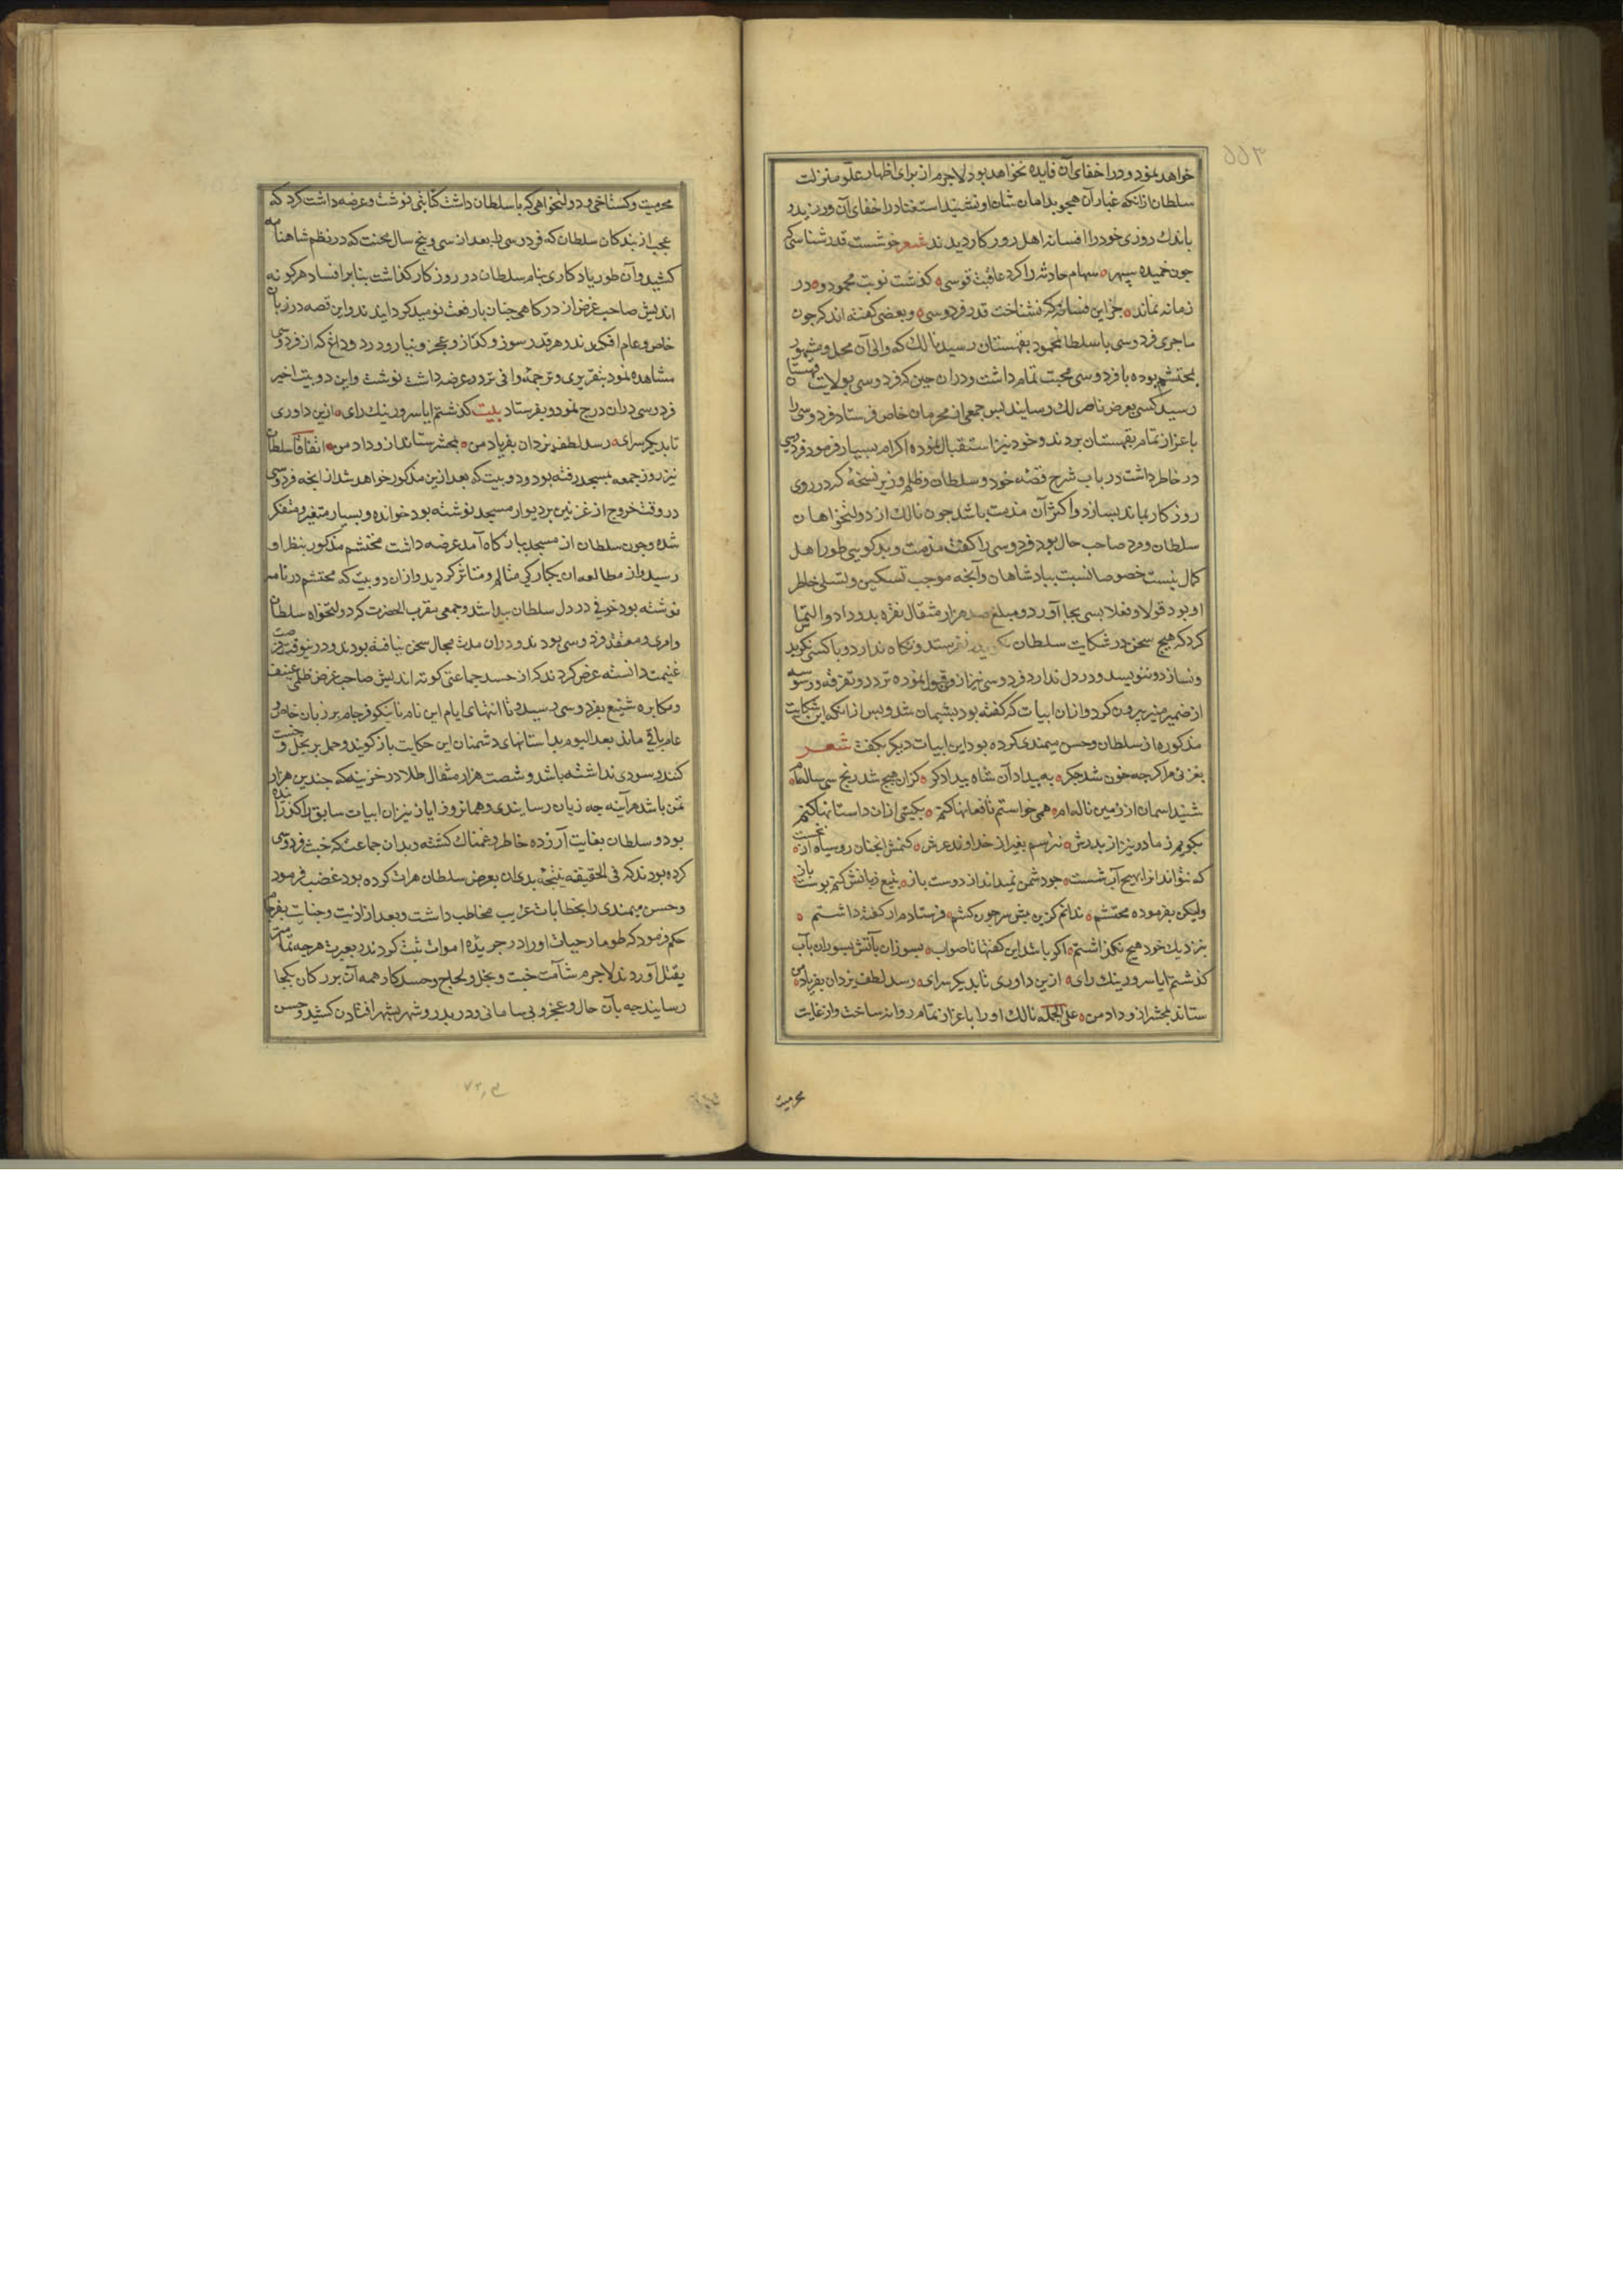 خواهد نمود و در اخفای آن فایده نخواهد بود لاجرم از برای اظهار علو منزلت
سلطان ازانکه غبار آن هجو بدامان شان او ننشیند استغنا در اخفای آن ورزیدند
باندك روزی خود را افسانه اهل روزکار دیدند شعر خوشست قدر شناسی که
جون خمیده سپهر سهام حادثه را کرد عاقبت قوسی کذشت نوبت محمود و در
زمانه نماند جز این فسانه که نشناخت قدر فردوسی و بعضی کفته اند که جون
ماجری فردوسی با سلطان محمود بقهستان رسید ناصر لك که والی آن محل و مشهور
بمحتشم بوده با فردوسی محبت تمام داشت و دران حین که فردوسی بولایت قهستان
رسید کسی بعرض ناصر لك رسانید بس جمعی از محرمان خاص فرستاد فردوسی را
باعزاز تمام بقهستان بردند و خود نیز استقبال نموده اکرام بسیار فرمود فردوسی
در خاطر داشت در باب شرح قصه خود و سلطان و ظلم وزیر نسخه که در روی
روزکار بماند بسازد و اکثر آن مذمت باشد جون نالك از دولتخواهان
سلطان و مرد صاحب حال بود فردوسی را کفت مذمت و بدکویی طور اهل
کمال نیست خصوصا نسبت ببادشاهان و آنجه موجب تسکین و تسلی خاطر
او بود قولا و فعلا بسی بجا آورد و مبلغ صد هزار مثقال نقره بدو داد و التماس
کرد که هیچ سخن در شکایت سلطان نکوید و نفرستد و نکاه ندارد و با کسی نکوید
و نسازد و ننویسد و در دل ندارد فردوسی نیز ازو قبول نموده تردد و تفرقه و وسوسه
از ضمیر منیر بیرون کرد و ازان ابیات که کفته بود بشیمان شد و بس ازانکه این شکایت
مذکوره از سلطان و حسن میمندی کرده بود این ابیات دیکر بکفت شعر
بغزنی مرا کرجه خون شد جکر به بیداد آن شاه بیدادکر کزان هیچ شد رنج سی ساله ام
شنید اسمان از زمین ناله ام همی خواستم تا فغانها کنم بکیتی ازان داستانها کنم
بکویم ز مادرش نیز از بدرش نترسم بغیر از خداوند عرش کنمش انجنان روسیاه از نخست
که نتواند انرا بهیج آب شست جو دشمن نمیداند از دوست باز بتیغ زبانش کنم بوست باز
ولیکن بفرموده محتشم ندانم کزین بیش سر جون کشم فرستادم ار کفته داشتم
بنزدیك خود هیج نکذاشتم اکر باشد این کفتها ناصواب بسوزان بآتش بشوران بآب
کذشتم ایا سرور نیك رای ازین داوری تا بدیکر سرای رسد لطف یزدان بفریاد من
ستاند بمحشر ازو داد من علی الجمله نالك او را باعزاز تمام روانه ساخت و از غایت
محرمیت
محرمیت و کستاخی و دولتخواهی که با سلطان داشت کتابتی نوشت و عرضه داشت کرد که
عجب از بندکان سلطان که فردوسی را بعد از سی و بنج سال محنت که در نظم شاهنامه
کشید و آن طور یادکاری بنام سلطان در روزکار کذاشت بنابر افساد هرکونه
اندیش صاحب غرض از درکاهی جنان بارفعت نومید کردانیدند و این قصه در زبان
خاص و عام افکندند و هر قدر سوز و کداز و عجز و نیاز و درد و داغ که از فردوسی
مشاهده نمود بتقریری و ترجمه وافی در عرضه داشت نوشت و این دو بیت اخیر
فردوسی دران درج نمود و بفرستاد بیت کذشتم ایا سرور نیك رای ازین داوری
تا بدیکر سرای رسد لطف یزدان بفریاد من بمحشر ستاند ازو داد من اتفاقا سلطان
نیز روز جمعه بمسجد رفته بود و دو بیت که بعد ازین مذکور خواهد شد از انجه فردوسی
در وقت خروج از غزنین بر دیوار مسجد نوشته بود خوانده و بسیار متغیر و متفکر
شده و جون سلطان از مسجد ببارکاه آمد عرضه داشت محتشم مذکور بنظر او
رسید و از مطالعه ان یکبارکی متالم و متاثر کردید و ازان دو بیت که محتشم در نامه
نوشته بود خوفی در دل سلطان بیدا شد و جمعی مقرب الحضرت که دولتخواه سلطان
و امری و معتقد فردوسی بودند و دران مدت مجال سخن نیافته بودند و درینوقت فرصت
غنیمت دانسته عرض کردند که از حسد جماعتی کوته اندیش صاحب غرض ظلمی عنیف
و مکابره شنیع بفردوسی رسید و تا انتهای ایام این نام نانیکو فرجام بر زبان خاص و
عام باقی ماند بعد الیوم بداستانهای دشمنان این حکایت باز کویند و حمل بر بخل و خست
کنند و سودی نداشته باشد و شصت هزار مثقال طلا در خزینه که جندین هزار
تمن باشد هرآینه جه زیان رسانیدی و همانروز ایاز نیز ان ابیات سابق را کذرانیده
بود و سلطان بغایت آزرده خاطر و غمناك کشته و بدان جماعت که خبث فردوسی
کرده بودند که فی الحقیقه نتیجه بدی ان بعرض سلطان هرات کرده بود غضب فرمود
و حسن میمندی را بخطابات غریب مخاطب داشت و بعد از اذیت و جنایت بفرجام
حکم فرمود که طومار حیات او را در جریده اموات ثبت کردند و بعبرت هرجه تمامتر
بقتل آوردند لاجرم شآمت خبث و بخل و لجاج و حسد کار همه آن بزرکان بکجا
رسانید جه بآن حال و عجز و بی سامانی و دربدر و شهر بشهر افتادن کشید و حسن